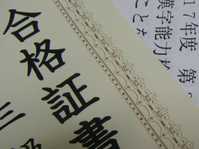 17年度 第
漢字能力
ことを
合格証書
三